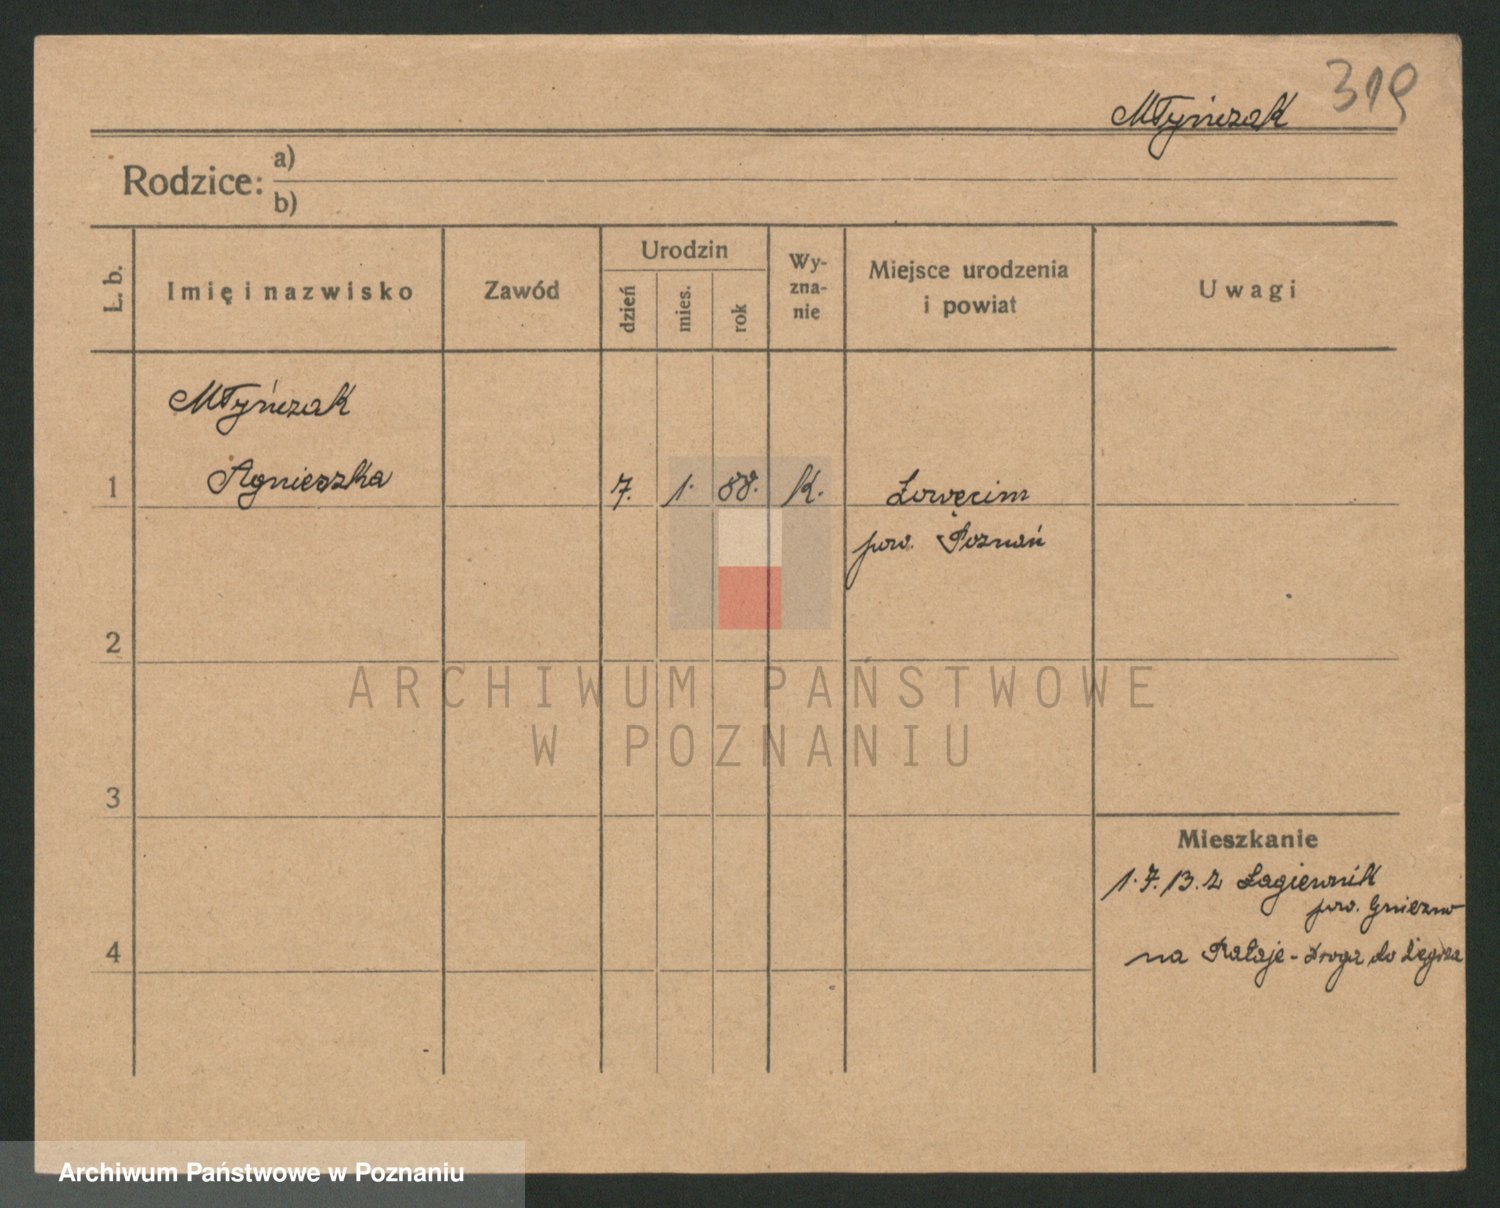 319
Młyńczak
Rodzice: a)
b)
L. b.
Imię i nazwisko
Zawód
Urodzin
dzień
mies.
rok
Wy-
zna-
nie
Miejsce urodzenia
i powiat
Uwagi
Młyńczak
1 Agnieszka 7. 1. 88. k. Łowęcin
pow. Poznań
2
ARCHIWUM PAŃSTWOWE
W POZNANIU
3
Mieszkanie
1.7.13. z Łagiewnik
pow. Gniezno
4
na Rataje - Droga do
Archiwum Państwowe w Poznaniu